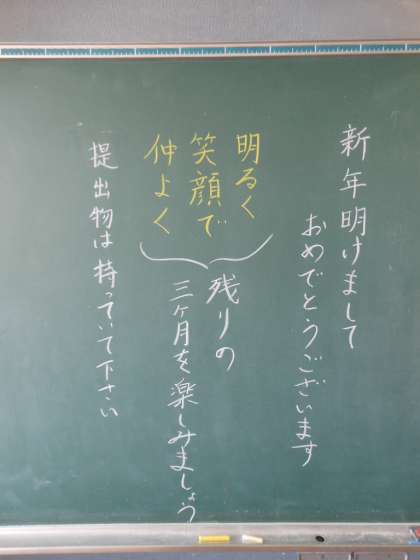 新年明けまして
おめでとうございます
明るく
笑顔で
仲よく
残りの
三ヶ月を楽しみましょう
提出物は持っていて下さい